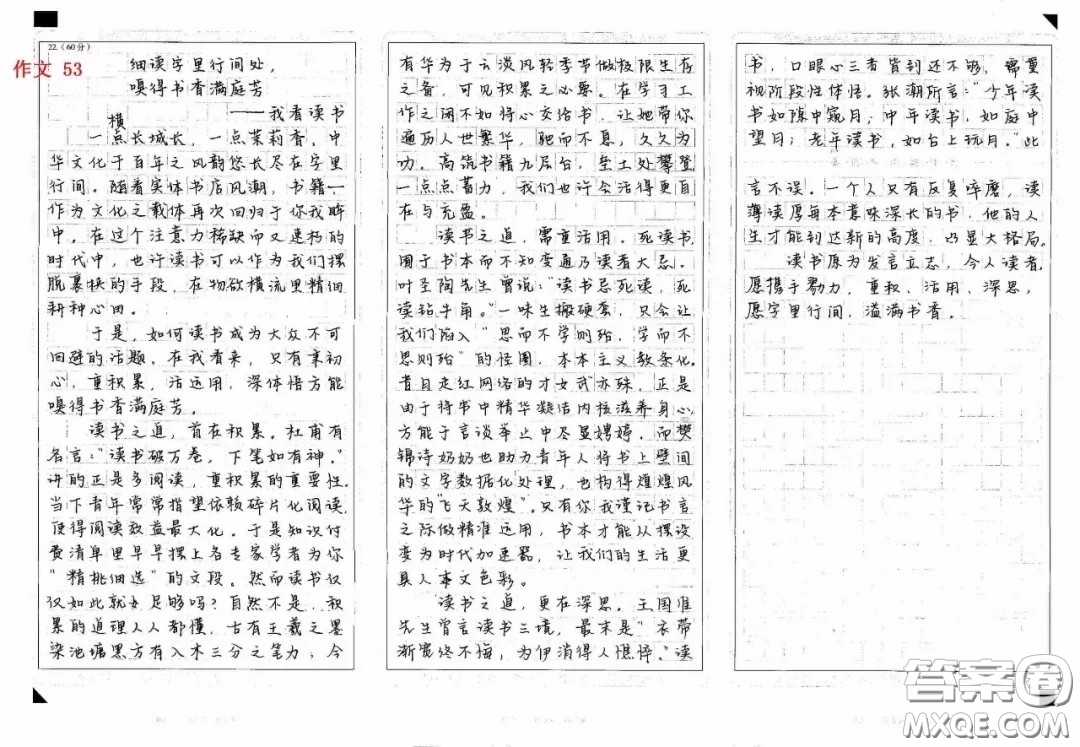 22.(60分)
作文 53
细读字里行间处,
嗅得书香满庭芳
——我看读书
横
一点长城长,一点茉莉香。中
华文化千百年之风韵悠长尽在字里
行间。随着实体书店风潮,书籍一
作为文化之载体再次回归于你我眸
中。在这个注意力稀缺而又速朽的
时代中,也许读书可以作为我们摆
脱裹挟的手段,在物欲横流里精细
耕种心田。
于是,如何读书成为大众不可
回避的话题。在我看来,只有秉初
心,重积累,活运用,深体悟方能
嗅得书香满庭芳。
读书之道,首在积累。杜甫有
名言:“读书破万卷,下笔如有神。”
讲的正是多阅读,重积累的重要性。
当下青年常常指望依赖碎片化阅读,
使得阅读效益最大化。于是知识付
费清单里早早摆上各专家学者为你
“精挑细选”的文段。然而读书仅
仅如此就足够吗?自然不是,积
累的道理人人都懂,古有王羲之墨
染池塘黑方有入木三分之笔力;今
有华为于云淡风轻季节做极限生存
之备,可见积累之必要。在学习工
作之闲不如得心交给书,让她带你
遍历人世繁华,驰而不息,久久为
功。高筑书籍九层台,垒土处攀登
一点点蓄力,我们也许会活得更自
在与充盈。
读书之道,需重活用。死读书,
囿于书本而不知变通乃读者大忌。
叶圣陶先生曾说:“读书忌死读,死
读钻牛角。”一味生搬硬套,只会让
我们陷入“思而不学则殆,学而不
思则殆”的怪圈,本本主义教条化。
昔日走红网络的才女武亦姝,正是
由于将书中精华凝结内核滋养身心
方能于言谈举止中尽显娉婷。而樊
锦诗奶奶也助力青年人将书上壁间
的文字数据化处理,也构得煌煌风
华的“飞天敦煌”。只有你我谨记书言
之际做精准运用,书本才能从摆设
变为时代加速器,让我们的生活更
具人本文色彩。
读书之道,更在深思。王国维
先生曾言读书三境,最末是“衣带
渐宽终不悔,为伊消得人憔悴。”读
书,口眼心三者皆到还不够,需重
视阶段性体悟。张潮所言:“少年读
书如隙中窥月;中年读书,如庭中
望月;老年读书,如台上玩月。”此
言不误。一个人只有反复啐磨,读
薄读厚每本意味深长的书,他的人
生才能到达新的高度,凸显大格局。
读书原为发言立志,今人读者,
愿携手勠力,重积、活用、深思,
愿字里行间,溢满书香。
答案圈
MXQE.COM